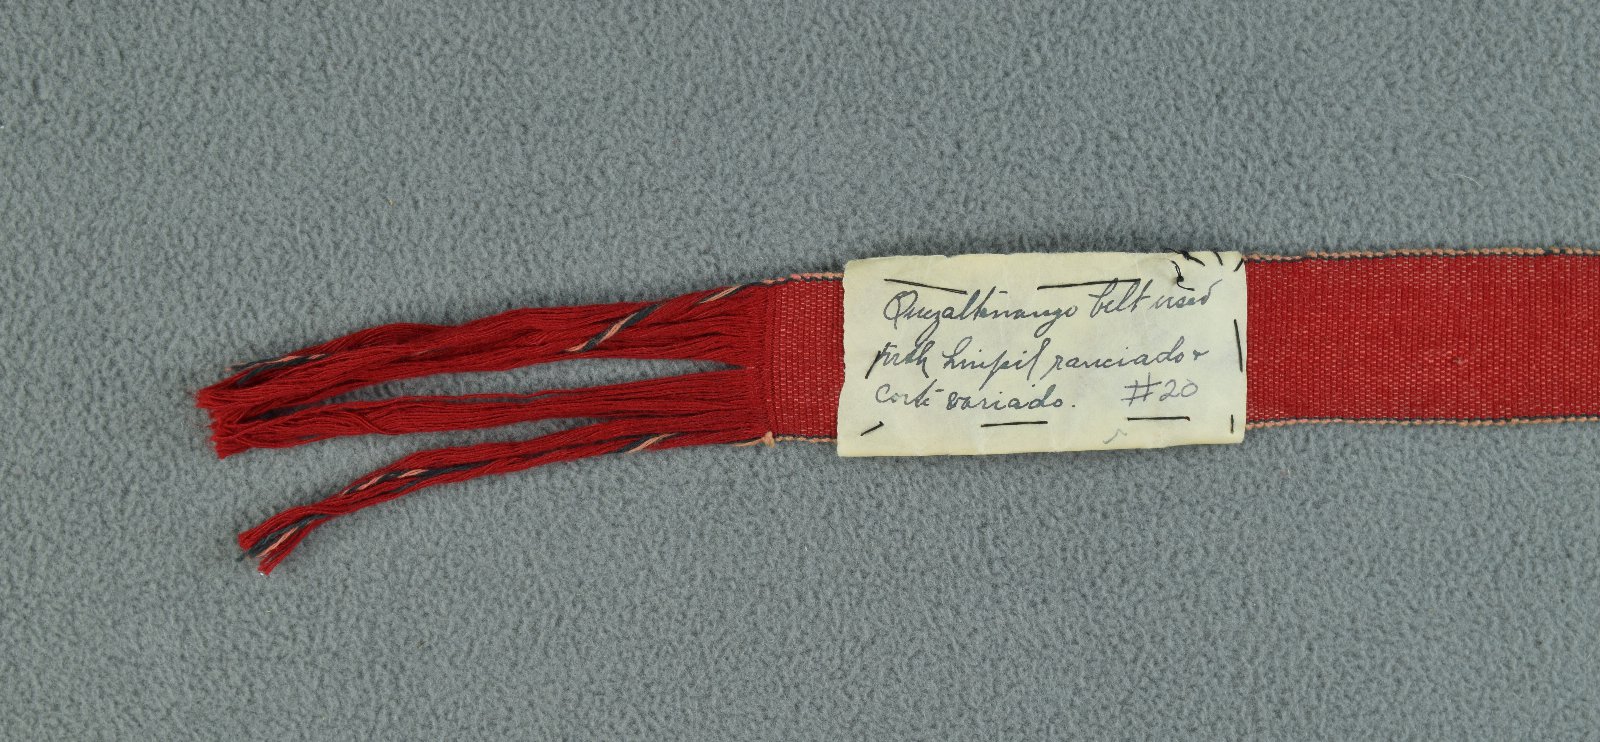 Quezaltenango belt used
with huipil ranciado &
corte variado. #20